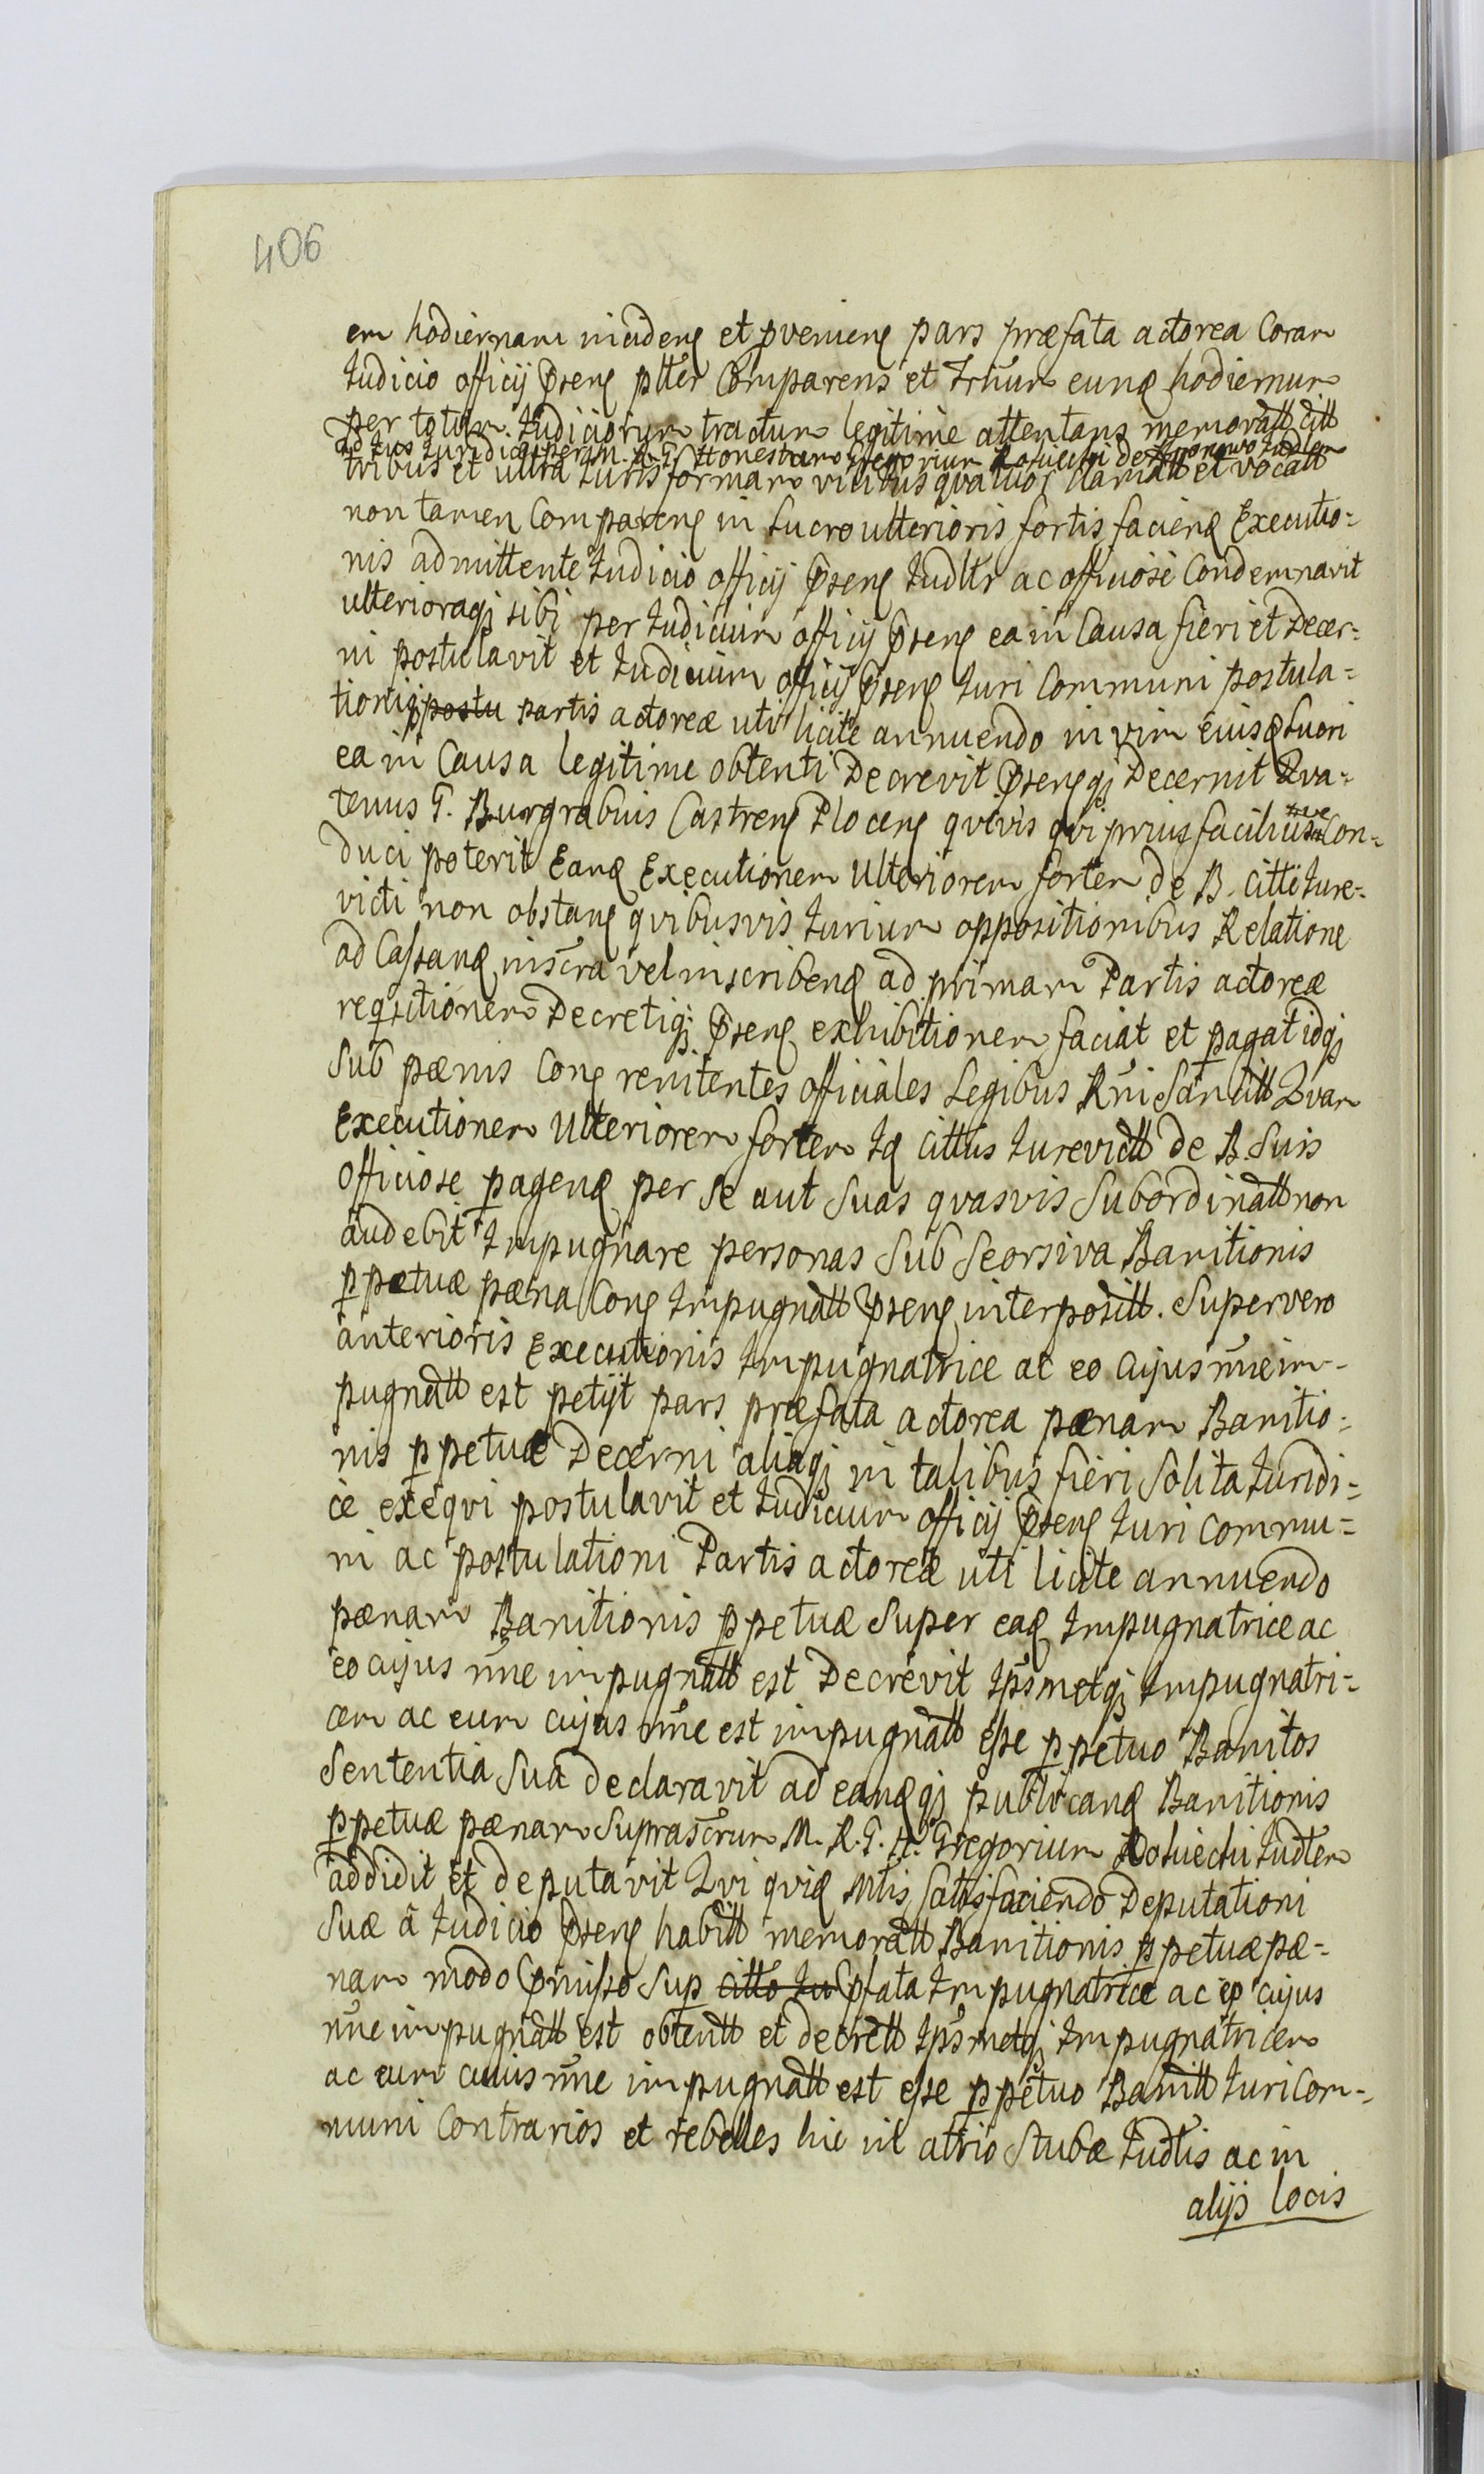 406
em hodiernam incidens et pveniens pars præfata actorea Coram
Judicio officij Psens plter Comparens et Trnum eund hodiernum
per totum Judiciorum tractum legitime attentans memoratt citt
ad Jus Juridice per M. R. G. Honestum Gregorium Rościcki de Judlem
tribus et ultra Juris formam vicibus quatuor clamatt et vocatt
non tamen Comparens in Lucro ulterioris fortis faciend Executio=
nis admittente Judicio officij Psens Judltr ac officiose Condemnavit
ulterioraqj sibi per Judicium officij Psens ea in Causa fieri et Decer=
ni postulavit et Judicium officij Psens Juri Communi postula=
tioniqj postu partis actoreæ uti licite annuendo in vim eiusd Lucri
ea in Causa legitime obtenti Decrevit Psensqj Decernit Qva=
tenus G. Burgrabius Castrens Plocens qvivis qvi prius facilius sive Con=
duci poterit Eand Executionem Ulteriorem fortem de B. citti Jure=
victi non obstand qvibusvis Jurium oppositionibus Relatione
ad Cassand inscra vel inscribend ad primam Partis actoreæ
reqsitionem Decretiqj Psens exhibitionem faciat et pagat idqj
Sub pænis Cons renitentes officiales Legibus Rni Sancitt Qvam
Executionem Ulteriorem fortem Id cittus Jurevictt de B. Suis
officiose pagend per Se aut Suas qvasvis Subordinatt non
audebit Impugnare personas Sub Seorsiva Banitionis
ppetuæ pæna Cons Impugnatt Psens interpositt. Super vero
anterioris Executionis Impugnatrice ac eo cujus nne im-
pugnatt est petijt pars præfata actorea pænam Banitio=
nis ppetuæ Decerni aliaqj in talibus fieri Solita Juridi=
ce exeqvi postulavit et Judicium officij Psens Juri Commu=
ni ac postulationi Partis actoreæ uti licite annuendo
pænam Banitionis ppetuæ Super ead Impugnatrice ac
eo cujus nne impugnatt est Decrevit Ipsmetqj Impugnatri=
cem ac eum cujus nne est impugnatt esse ppetuo Banitos
Sententia Sua declaravit ad eandqj publicand Banitionis
ppetuæ pænam Suprascrum M. R. G. H. Gregorium Rościcki Judtem
addidit et deputavit Qvi qvid Mtis Satisfaciendo Deputationi
Suæ â Judicio Psens habitt memoratt Banitionis ppetuæ pæ=
nam modo Pmisso Sup citto Ju Pfata Impugnatrice ac eo cujus
nne impugnatt est obtentt et decrett Ipsmetqj Impugnatricem
ac eum cuius nne impugnatt est esse ppetuo Banitt Juri Com=
muni Contrarios et rebelles hic in atrio Stubæ Judtis ac in
alijs locis